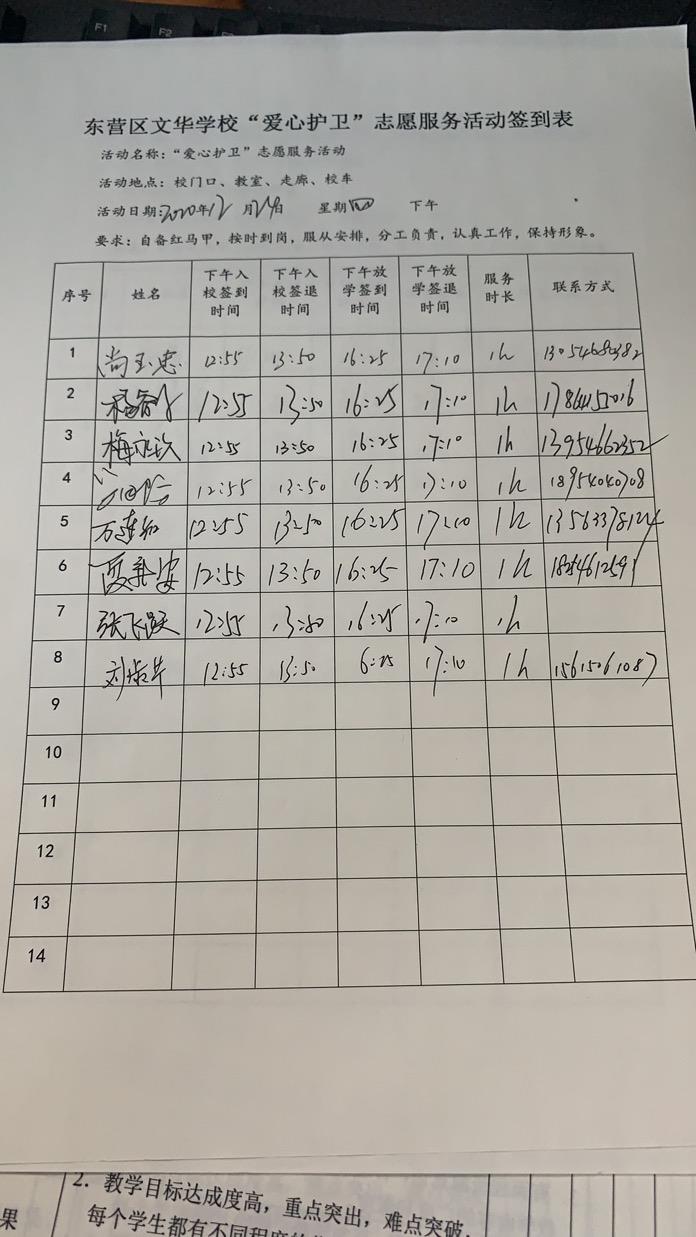 F1
F2
东营区文华学校“爱心护卫”志愿服务活动签到表
活动名称：“爱心护卫”志愿服务活动
活动地点：校门口、教室、走廊、校车
活动日期：2020年12月24日 星期四 下午
要求：自备红马甲，按时到岗，服从安排，分工负责，认真工作，保持形象。
序号 姓名 下午入校签到时间 下午入校签退时间 下午放学签到时间 下午放学签退时间 服务时长 联系方式
1 尚玉忠 12:55 13:50 16:25 17:10 1h 13054680382
2 12:55 13:50 16:25 17:10 1h
3 12:55 13:50 16:25 17:10 1h 13954662352
4 12:55 13:50 16:25 17:10 1h 18954040708
5 万连和 12:55 13:50 16:25 17:10 1h
6 12:55 13:50 16:25 17:10 1h 18254612591
7 张飞跃 12:55 13:50 16:25 17:10 1h
8 12:55 13:50 6:25 17:10 1h 15615061087
9
10
11
12
13
14
2. 教学目标达成度高，重点突出，难点突破，
果 每个学生都有不同程度的